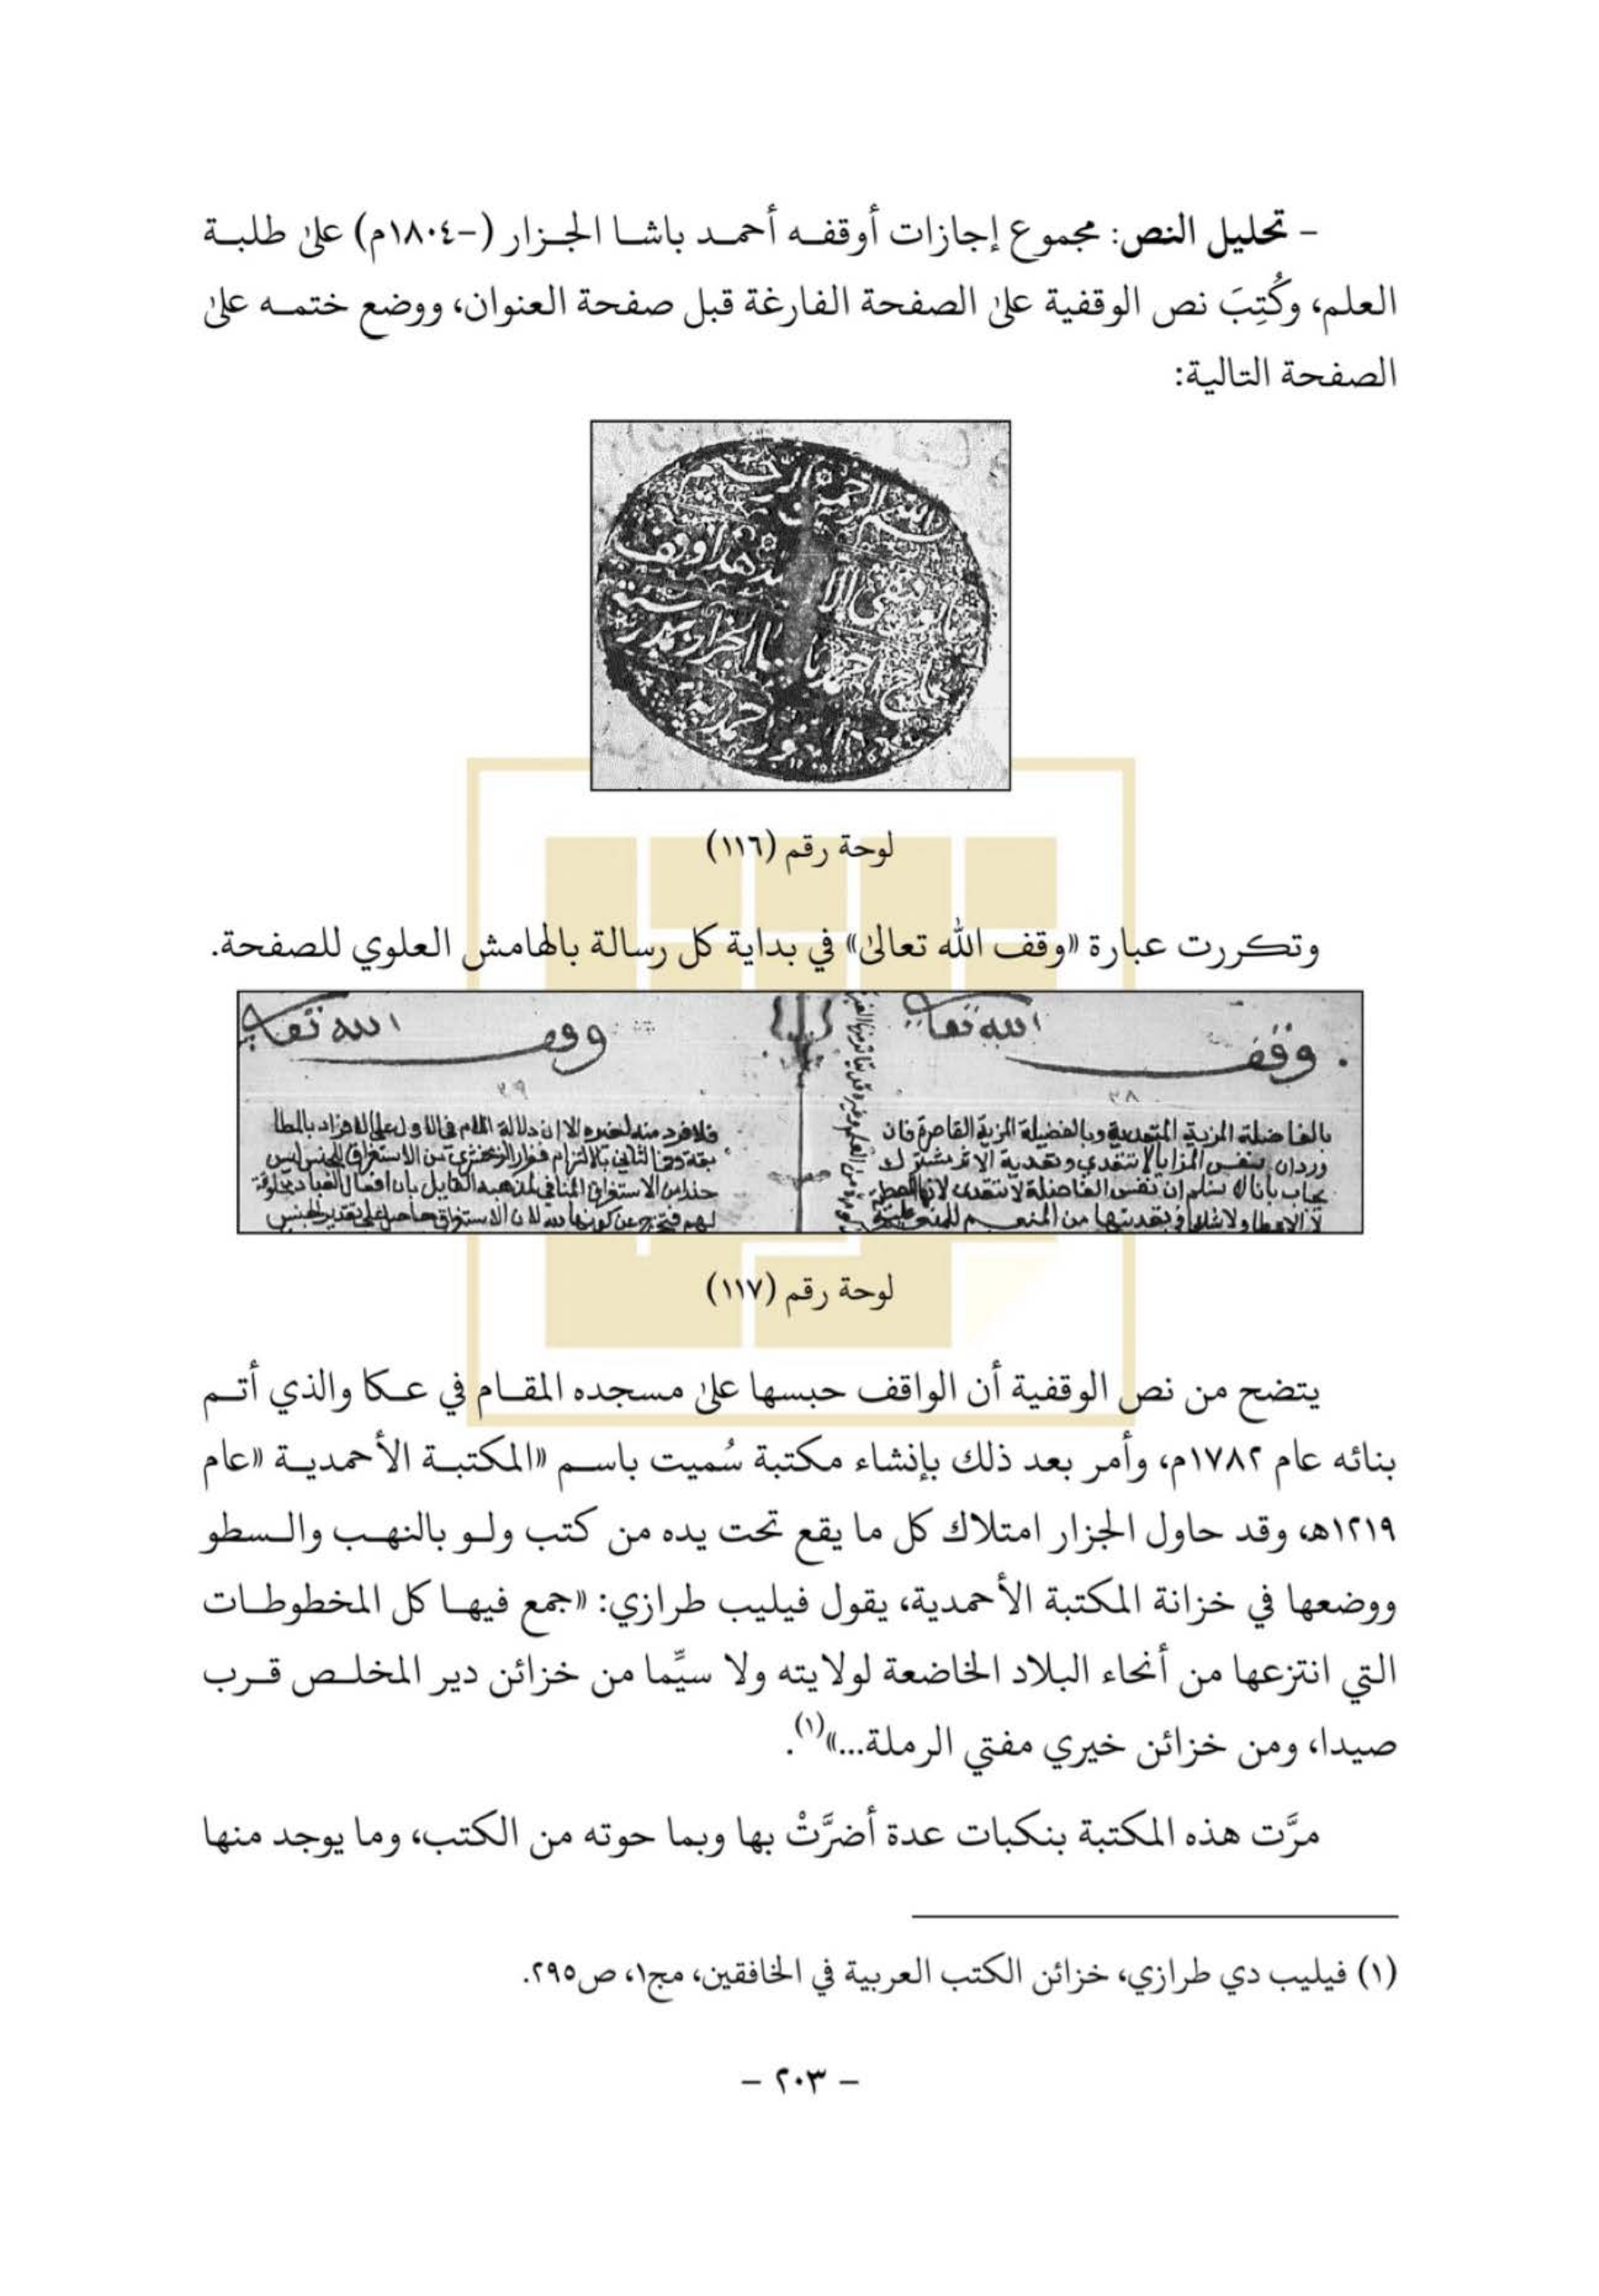 - تحليل النص: مجموع إجازات أوقفه أحمد باشا الجزار (-١٨٠٤م) على طلبة
العلم، وكُتِبَ نص الوقفية على الصفحة الفارغة قبل صفحة العنوان، ووضع ختمه على
الصفحة التالية:
لوحة رقم (١١٦)
وتكررت عبارة «وقف الله تعالى» في بداية كل رسالة بالهامش العلوي للصفحة.
وقف الله تعالى
وقف الله تعالى
٣٨
٣٩
لوحة رقم (١١٧)
يتضح من نص الوقفية أن الواقف حبسها على مسجده المقام في عكا والذي أتم
بنائه عام ١٧٨٢م، وأمر بعد ذلك بإنشاء مكتبة سُميت باسم «المكتبة الأحمدية «عام
١٢١٩هـ، وقد حاول الجزار امتلاك كل ما يقع تحت يده من كتب ولو بالنهب والسطو
ووضعها في خزانة المكتبة الأحمدية، يقول فيليب طرازي: «جمع فيها كل المخطوطات
التي انتزعها من أنحاء البلاد الخاضعة لولايته ولا سيَّما من خزائن دير المخلص قرب
صيدا، ومن خزائن خيري مفتي الرملة...»(١).
مرَّت هذه المكتبة بنكبات عدة أضرَّتْ بها وبما حوته من الكتب، وما يوجد منها
(١) فيليب دي طرازي، خزائن الكتب العربية في الخافقين، مج١، ص٢٩٥.
- ٢٠٣ -